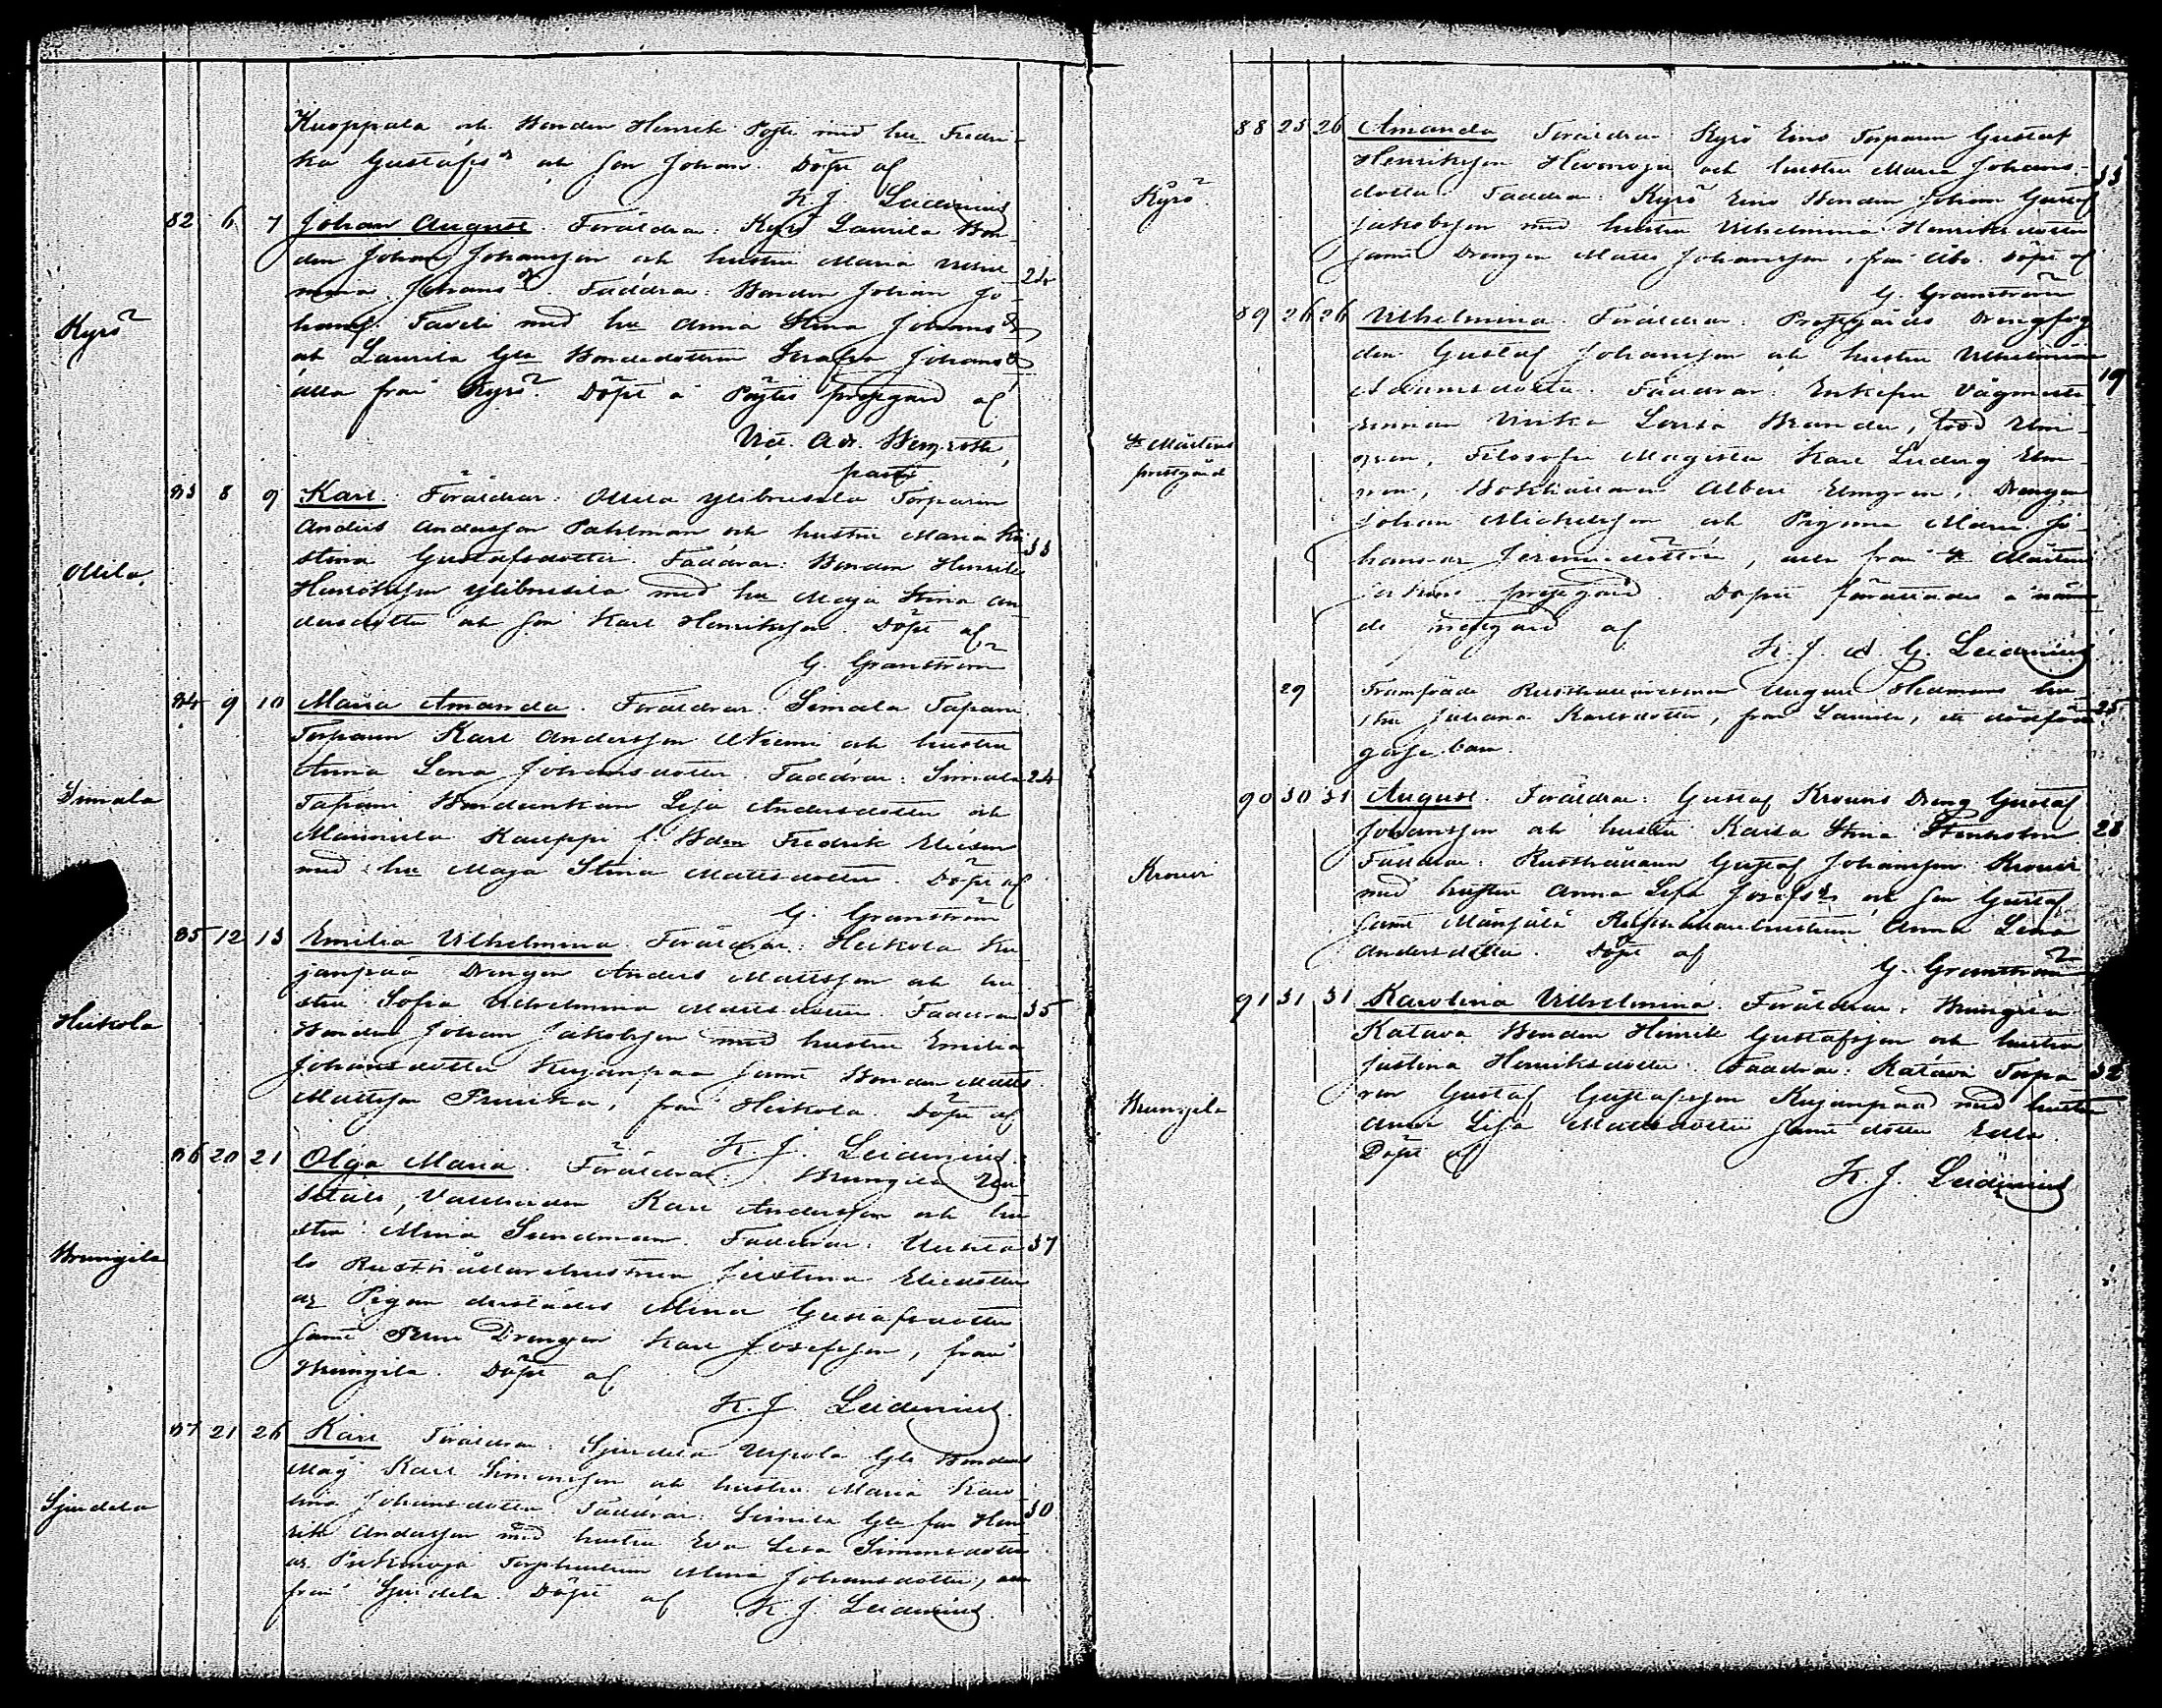 Kuoppala och Bonden Henrik Pojti med hu Fredri-
ka Gustafsdr och son Johan. Döpt af
K. J. Leidenius
82 6 7 Johan August. Föräldrar: Kyrö Laurila Bon-
den Johan Johansson och hustru Maria Vilhel 24
mina Johansdr Faddrar: Bonden Johan Jo-
Kyrö
hanss. Taveli med hu Anna Stina Johansdr
och Laurila Gla Bondedottren Serafia Johansdr
alla från Kyrö. Döpt å Pöytis prestgård af
Vic. Adj.
past.
83 8 9 Karl. Föräldrar: Ollila Ylibusila Torparen
Anders Andersson Pahlman och hustru Maria Kri 33
stina Gustafsdotter. Faddrar: Bonden Henrik
Ollila
Henriksson Ylibusila med hu Maja Stina An
dersdotter och son Karl Henriksson. Döpt af
G. Granström
84 9 10 Maria Amanda. Föräldrar. Simala Tapani
Torparen Karl Andersson Niemi och hustru
Anna Lena Johansdotter. Faddrar: Simala 24
Simala
Tapani Bondeenkan Lisa Andersdotter och
Kauppi f. Bden Fredrik Eliesson
med hu Maja Stina Mattsdotter. Döpt af
G. Granström
85 12 13 Emilia Vilhelmina. Föräldrar: Heikola Ku
janpää Drengen Anders Mattsson och hu
stru Sofia Vilhelmina Mattsdotter. Faddrar 35
Heikola
Bonden Johan Jakobsson med hustru Emilia
Johansdotter Kujanpää samt Bonden Matts
Mattsson Prunka, från Heikola. Döpt af
K. J. Leidenius.
86 20 21 Olga Maria. Föräldrar. Brungila Uu
sitalo, Karl Andersson och hu
stru Mina Sundman. Faddrar: Uusita 37
Brungila
lo Rusthållarehustrun Justina Eliedotter
och Pigan derstädes Mina Gustafsdotter
samt Drengen Karl Josefsson, från
Brungila. Döpt af
K. J. Leidenius.
87 21 26 Karl Föräldrar: Sjundela Uspola Gla Bondens
Måg Karl Simonsson och hustru Maria Karo
lina Johansdotter. Faddrar: Simila Gla far Hen 30
Sjundela
rik Andersson med hustru Eva Lisa Simonsdotter
och Torphustrun Mina Johansdotter, alla
från Sjundela. Döpt af K J. Leidenius.
88 25 26 Amanda Föräldrar Kyrö Eino Torparen Gustaf
Henriksson och hustru Maria Johans- 33
Kyrö.
dotter Faddrar: Kyrö Eino Bonden Johan Gustaf
Jakobsson med hustru Vilhelmina Henriksdotter
samt Drengen Matts Johansson, från Åbo. Döpt af
G. Granström
89 26 26 Vilhelmina. Föräldrar: Prestgårds Drengfog
den Gustaf Johansson och hustru Vilhelmina
Adamsdotter. Faddrar: Enkefru Vågmäste 19
rinnan Ulrika Lovisa Brander, född Elm-
St Mårtens
prestgård
gren, Filosofie Magister Karl Ludvig Elm-
gren, Bokhållaren Albert Elmgren, Drengen
Johan Michelsson och Pigorna Maria Jo-
hans- och Jeremiædöttrar, alla från St Mårtens
prestgård. Dopet förrättades å nämn
de prestgård af
K. J. A. G. Leidenius
29 Framfödde Rusthållaresonen August Hedmans hu
stru Juliana Karlsdotter, från Laurila, ett dödfödt 25
gosse barn.
90 30 31 August. Föräldrar: Gustaf Krouvi Dreng Gustaf
Johansson och hustru Kaisa Stina Stenholm 28
Krouvi
Faddrar: Rusthållaren Gustaf Johansson Krouvi
med hustru Anna Lisa Josefsdr och son Gustaf
samt Mänpää Rusthållarehustrun Anna Lena
Andersdotter. Döpt af
G. Granström
91 31 31 Karolina Vilhelmina. Föräldrar: Brungila
Katava Bonden Henrik Gustafsson och hustru
Justina Henriksdotter. Faddrar: Katava Torpa 32
Brungila
ren Gustaf Gustafsson Kujanpää med hustru
Anna Lisa Mattsdotter samt dotter Edla.
Döpt af
K. J. Leidenius